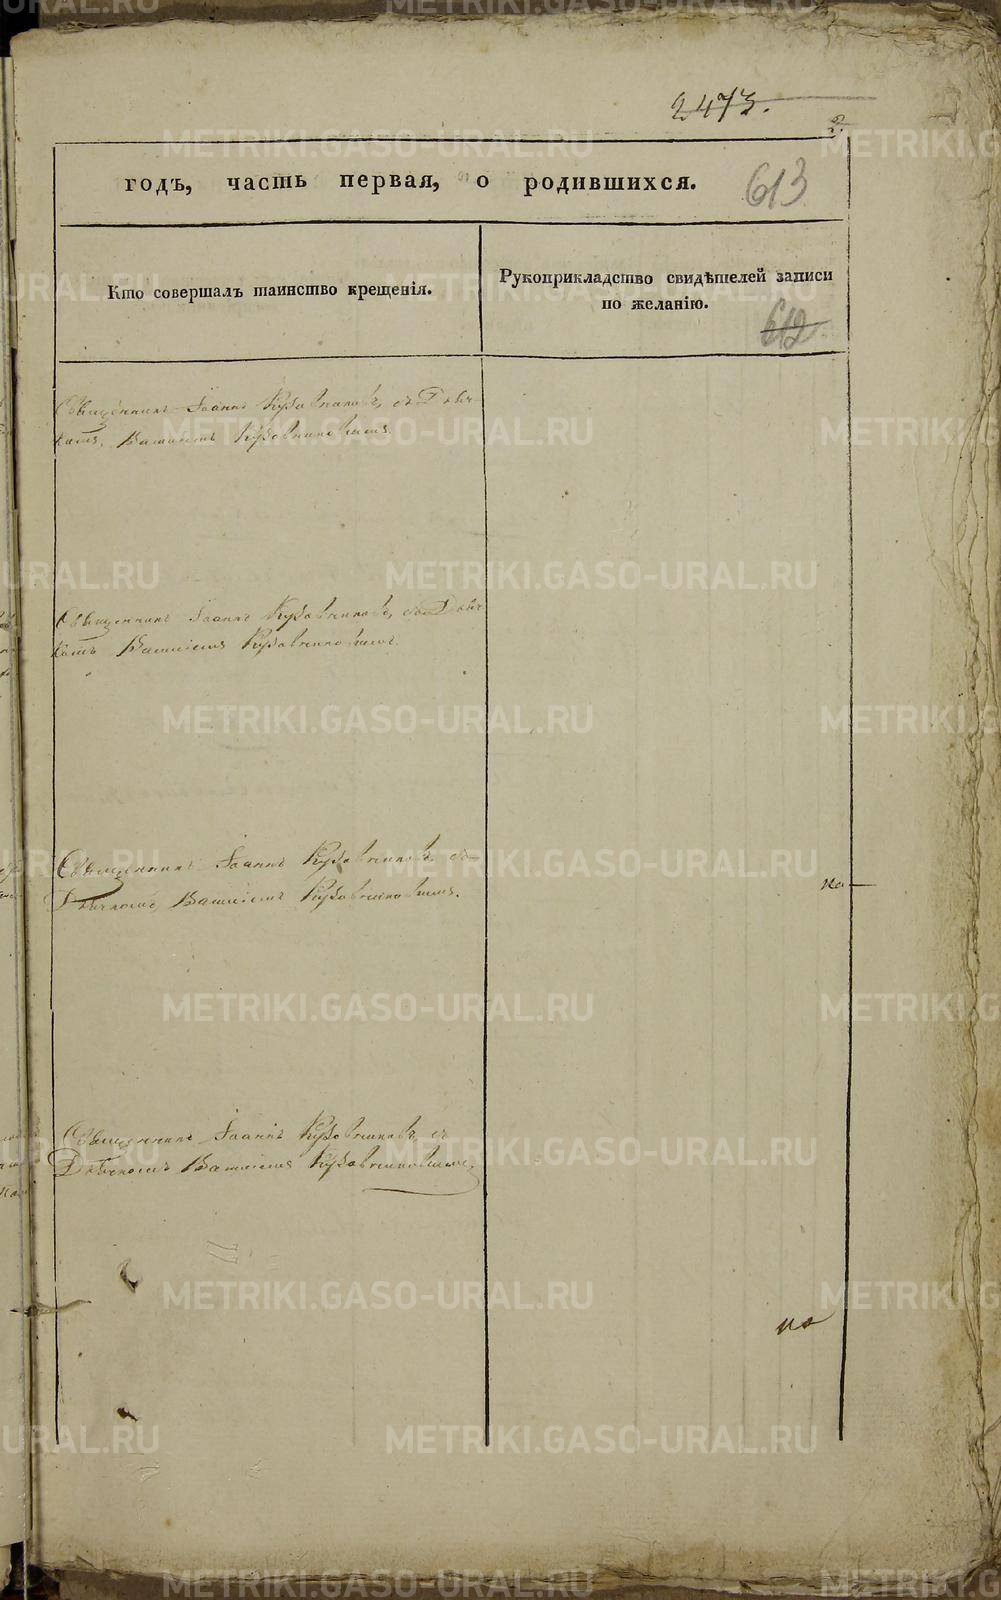 2473.
годъ, часть первая, о родившихся. 613
Кто совершалъ таинство крещенія.
Рукоприкладство свидѣтелей записи
по желанію.
612
Священникъ Іоаннъ Кузовниковъ, съ Дьяч
комъ, Василіемъ Кузовниковымъ.
Священникъ Іоаннъ Кузовниковъ, съ Дьяч
комъ Василіемъ Кузовниковымъ.
Священникъ Іоаннъ Кузовниковъ, съ
Дьячкомъ, Василіемъ Кузовниковымъ.
Священникъ Іоаннъ Кузовниковъ, съ
Дьячкомъ Василіемъ Кузовниковымъ,
METRIKI.GASO-URAL.RU